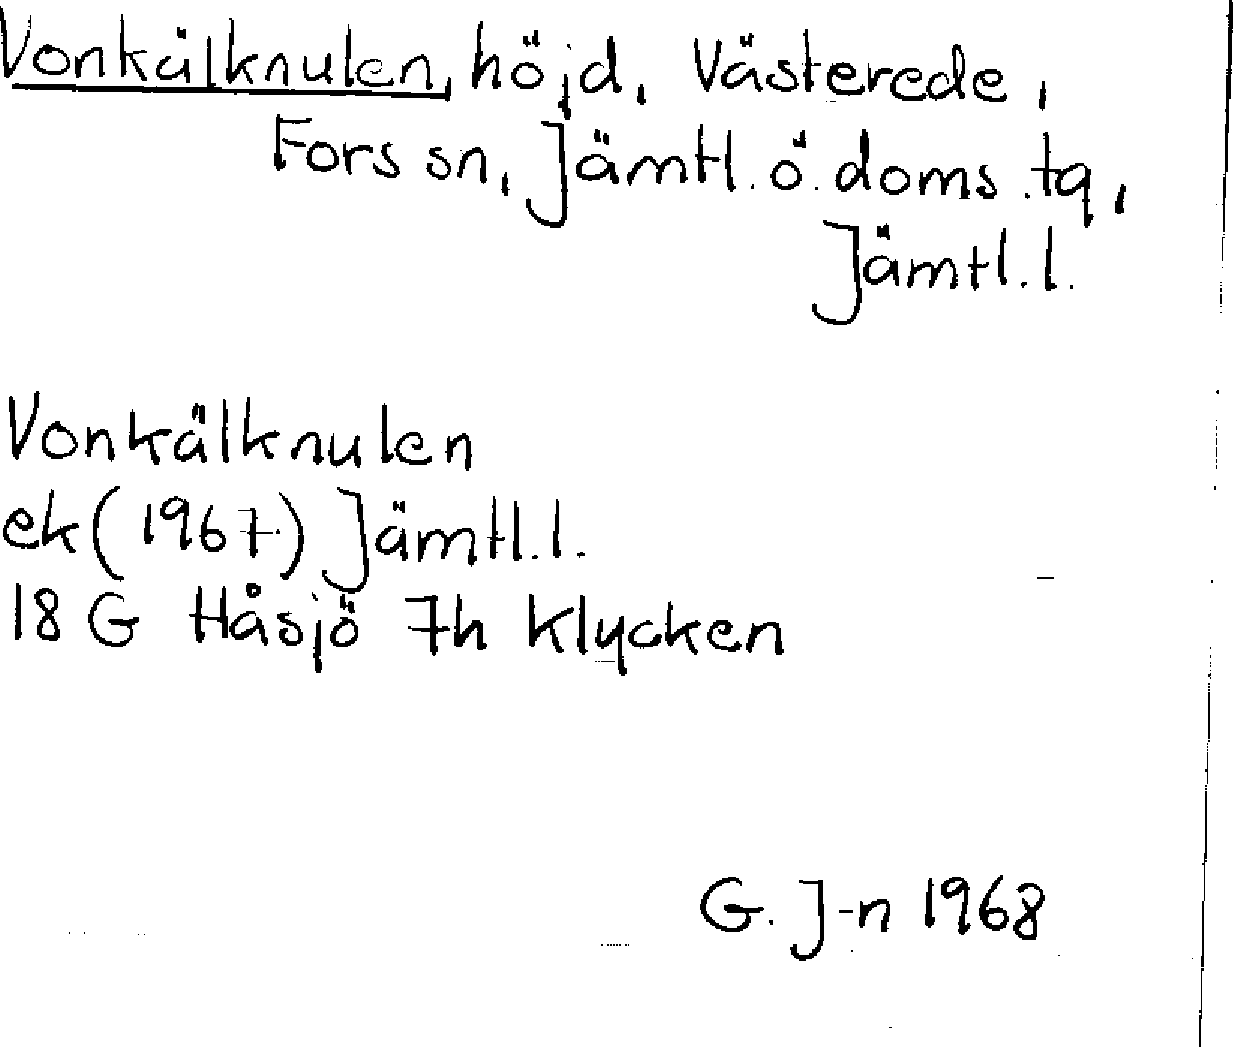 Vonkälknulen, höjd, Västerede,
Fors sn, Jämtl. ö. doms. tg,
Jämtl. l.
Vonkälknulen
ek (1967) Jämtl. l.
18 G Håsjö 7h Klycken
G. J-n 1968